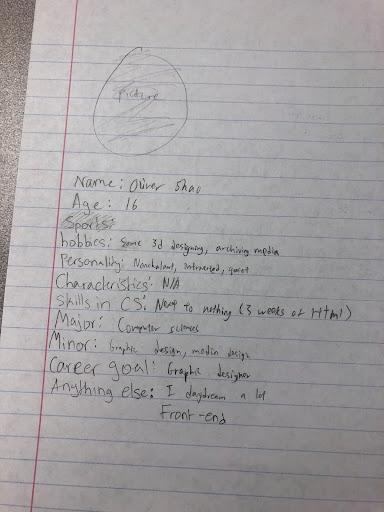 picture
Name: Oliver Shao
Age: 16
Sports:
hobbies: Some 3d designing, archiving media
Personality: Nonchalant, introverted, quiet
Characteristics: N/A
Skills in CS: Next to nothing (3 weeks of Html)
Major: Computer sciences
Minor: Graphic design, media design
Career goal: Graphic designer
Anything else: I daydream a lot
Front-end